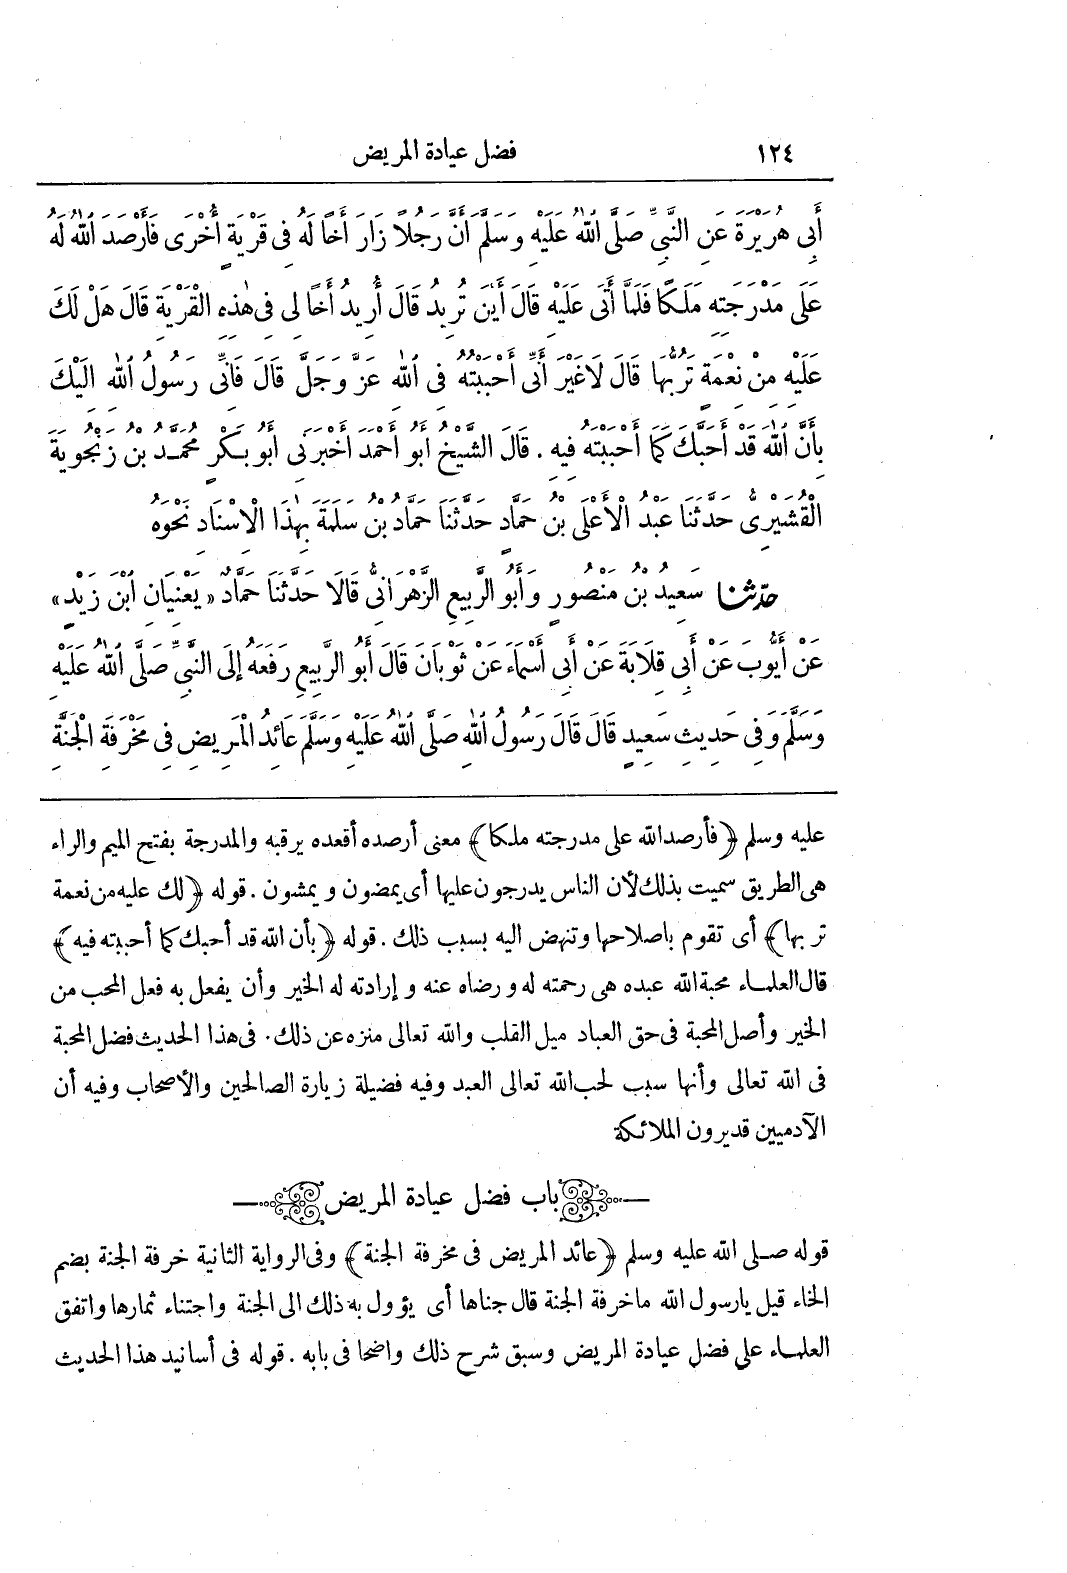 ١٢٤ فضل عيادة المريض
أَبِى هُرَيْرَةَ عَنِ النَّبِىِّ صَلَّى اللهُ عَلَيْهِ وَسَلَّمَ أَنَّ رَجُلًا زَارَ أَخًا لَهُ فِى قَرْيَةٍ أُخْرَى فَأَرْصَدَ اللهُ لَهُ
عَلَى مَدْرَجَتِهِ مَلَكًا فَلَمَّا أَتَى عَلَيْهِ قَالَ أَيْنَ تُرِيدُ قَالَ أُرِيدُ أَخًا لِى فِى هٰذِهِ الْقَرْيَةِ قَالَ هَلْ لَكَ
عَلَيْهِ مِنْ نِعْمَةٍ تَرُبُّهَا قَالَ لَا غَيْرَ أَنِّى أَحْبَبْتُهُ فِى اللهِ عَزَّ وَجَلَّ قَالَ فَانِّى رَسُولُ اللهِ الَيْكَ
بِأَنَّ اللهَ قَدْ أَحَبَّكَ كَمَا أَحْبَبْتَهُ فِيهِ . قَالَ الشَّيْخُ أَبُو أَحْمَدَ أَخْبَرَنِى أَبُو بَكْرٍ مُحَمَّدُ بْنُ زَنْجُويَةَ
الْقُشَيْرِىُّ حَدَّثَنَا عَبْدُ الْأَعْلَى بْنُ حَمَّادٍ حَدَّثَنَا حَمَّادُ بْنُ سَلَمَةَ بِهٰذَا الْاسْنَادِ نَحْوَهُ
حدّثنا سَعِيدُ بْنُ مَنْصُورٍ وَأَبُو الرَّبِيعِ الزَّهْرَانِىُّ قَالَا حَدَّثَنَا حَمَّادٌ «يَعْنِيَانِ ابْنَ زَيْدٍ»
عَنْ أَيُّوبَ عَنْ أَبِى قِلَابَةَ عَنْ أَبِى أَسْمَاءَ عَنْ ثَوْبَانَ قَالَ أَبُو الرَّبِيعِ رَفَعَهُ إِلَى النَّبِىِّ صَلَّى اللهُ عَلَيْهِ
وَسَلَّمَ وَفِى حَدِيثِ سَعِيدٍ قَالَ قَالَ رَسُولُ اللهِ صَلَّى اللهُ عَلَيْهِ وَسَلَّمَ عَائِدُ الْمَرِيضِ فِى مَخْرَفَةِ الْجَنَّةِ
عليه وسلم ﴿فأرصدالله على مدرجته ملكا﴾ معنى أرصده أقعده يرقبه والمدرجة بفتح الميم والراء
هى الطريق سميت بذلك لأن الناس يدرجون عليها أى يمضون و يمشون . قوله ﴿لك عليه من نعمة
تر بها﴾ أى تقوم باصلاحها وتنهض اليه بسبب ذلك . قوله ﴿بأن الله قد أحبك كما أحببته فيه﴾
قال العلماء محبة الله عبده هى رحمته له و رضاه عنه و إرادته له الخير وأن يفعل به فعل المحب من
الخير وأصل المحبة فى حق العباد ميل القلب والله تعالى منزه عن ذلك . فى هذا الحديث فضل المحبة
فى الله تعالى وأنها سبب لحب الله تعالى العبد وفيه فضيلة زيارة الصالحين والأصحاب وفيه أن
الآدميين قديرون الملائكة
باب فضل عيادة المريض
قوله صلى الله عليه وسلم ﴿عائد المريض فى مخرفة الجنة﴾ وفى الرواية الثانية خرفة الجنة بضم
الخاء قيل يارسول الله ماخرفة الجنة قال جناها أى يؤول به ذلك الى الجنة واجتناء ثمارها واتفق
العلماء على فضل عيادة المريض وسبق شرح ذلك واضحا فى بابه . قوله فى أسانيد هذا الحديث